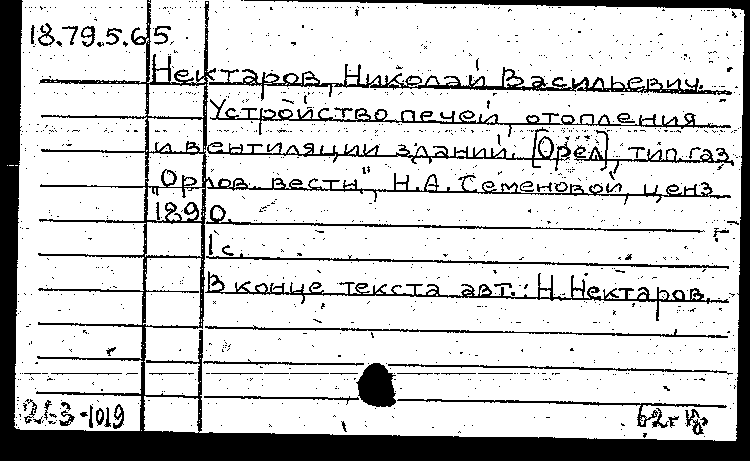 18.79.5.65
Нектаров, Николай Васильевич.
Устройство печей, отопления
и вентиляции зданий. [Орел], тип. газ.
"Орлов. вестн.", Н.А. Семеновой, ценз.
1890.
1 с.
В конце текста авт.: Н. Нектаров.
263-1019
62г